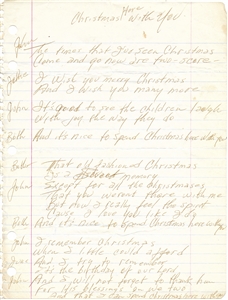 Christmas Here With You
John The times that I've seen Christmas
Come and go now are two-score-
Julie I Wish you merry Christmas
And I wish you many more
John It's good to see the children laugh
With joy the way they do
Both And it's nice to Spend Christmas here with you
That old fashioned Christmas
Is a memory
John Except for all the Christmases
That weren't there with me
But now I really feel the spirit
Cause I love you like I do
Both And it's nice to Spend Christmas here with you
John I remember Christmas
When I little could afford
June And I try to remember
It's the birthday of our Lord
John And I will not forget to thank him
For the blessings he
that I can Spend Christmas